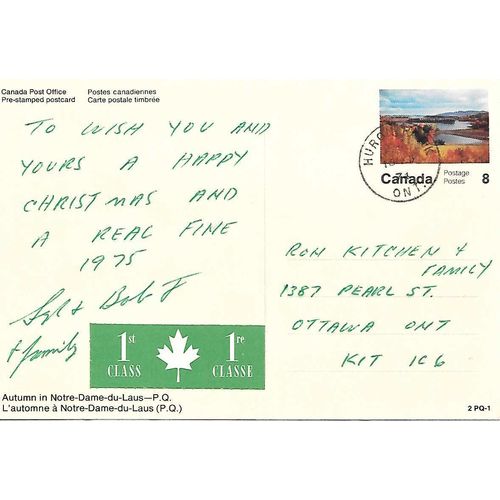 Canada Post Office Postes canadiennes
Pre-stamped postcard Carte postale timbrée
TO WISH YOU AND
YOURS A HAPPY
CHRISTMAS AND
A REAL FINE
1975
Bob
& family
1st CLASS 1re CLASSE
Autumn in Notre-Dame-du-Laus—P.Q.
L'automne à Notre-Dame-du-Laus (P.Q.)
ONT.
Canada Postage Postes 8
RON KITCHEN &
FAMILY
1387 PEARL ST.
OTTAWA ONT
K1T 1C6
2 PQ-1